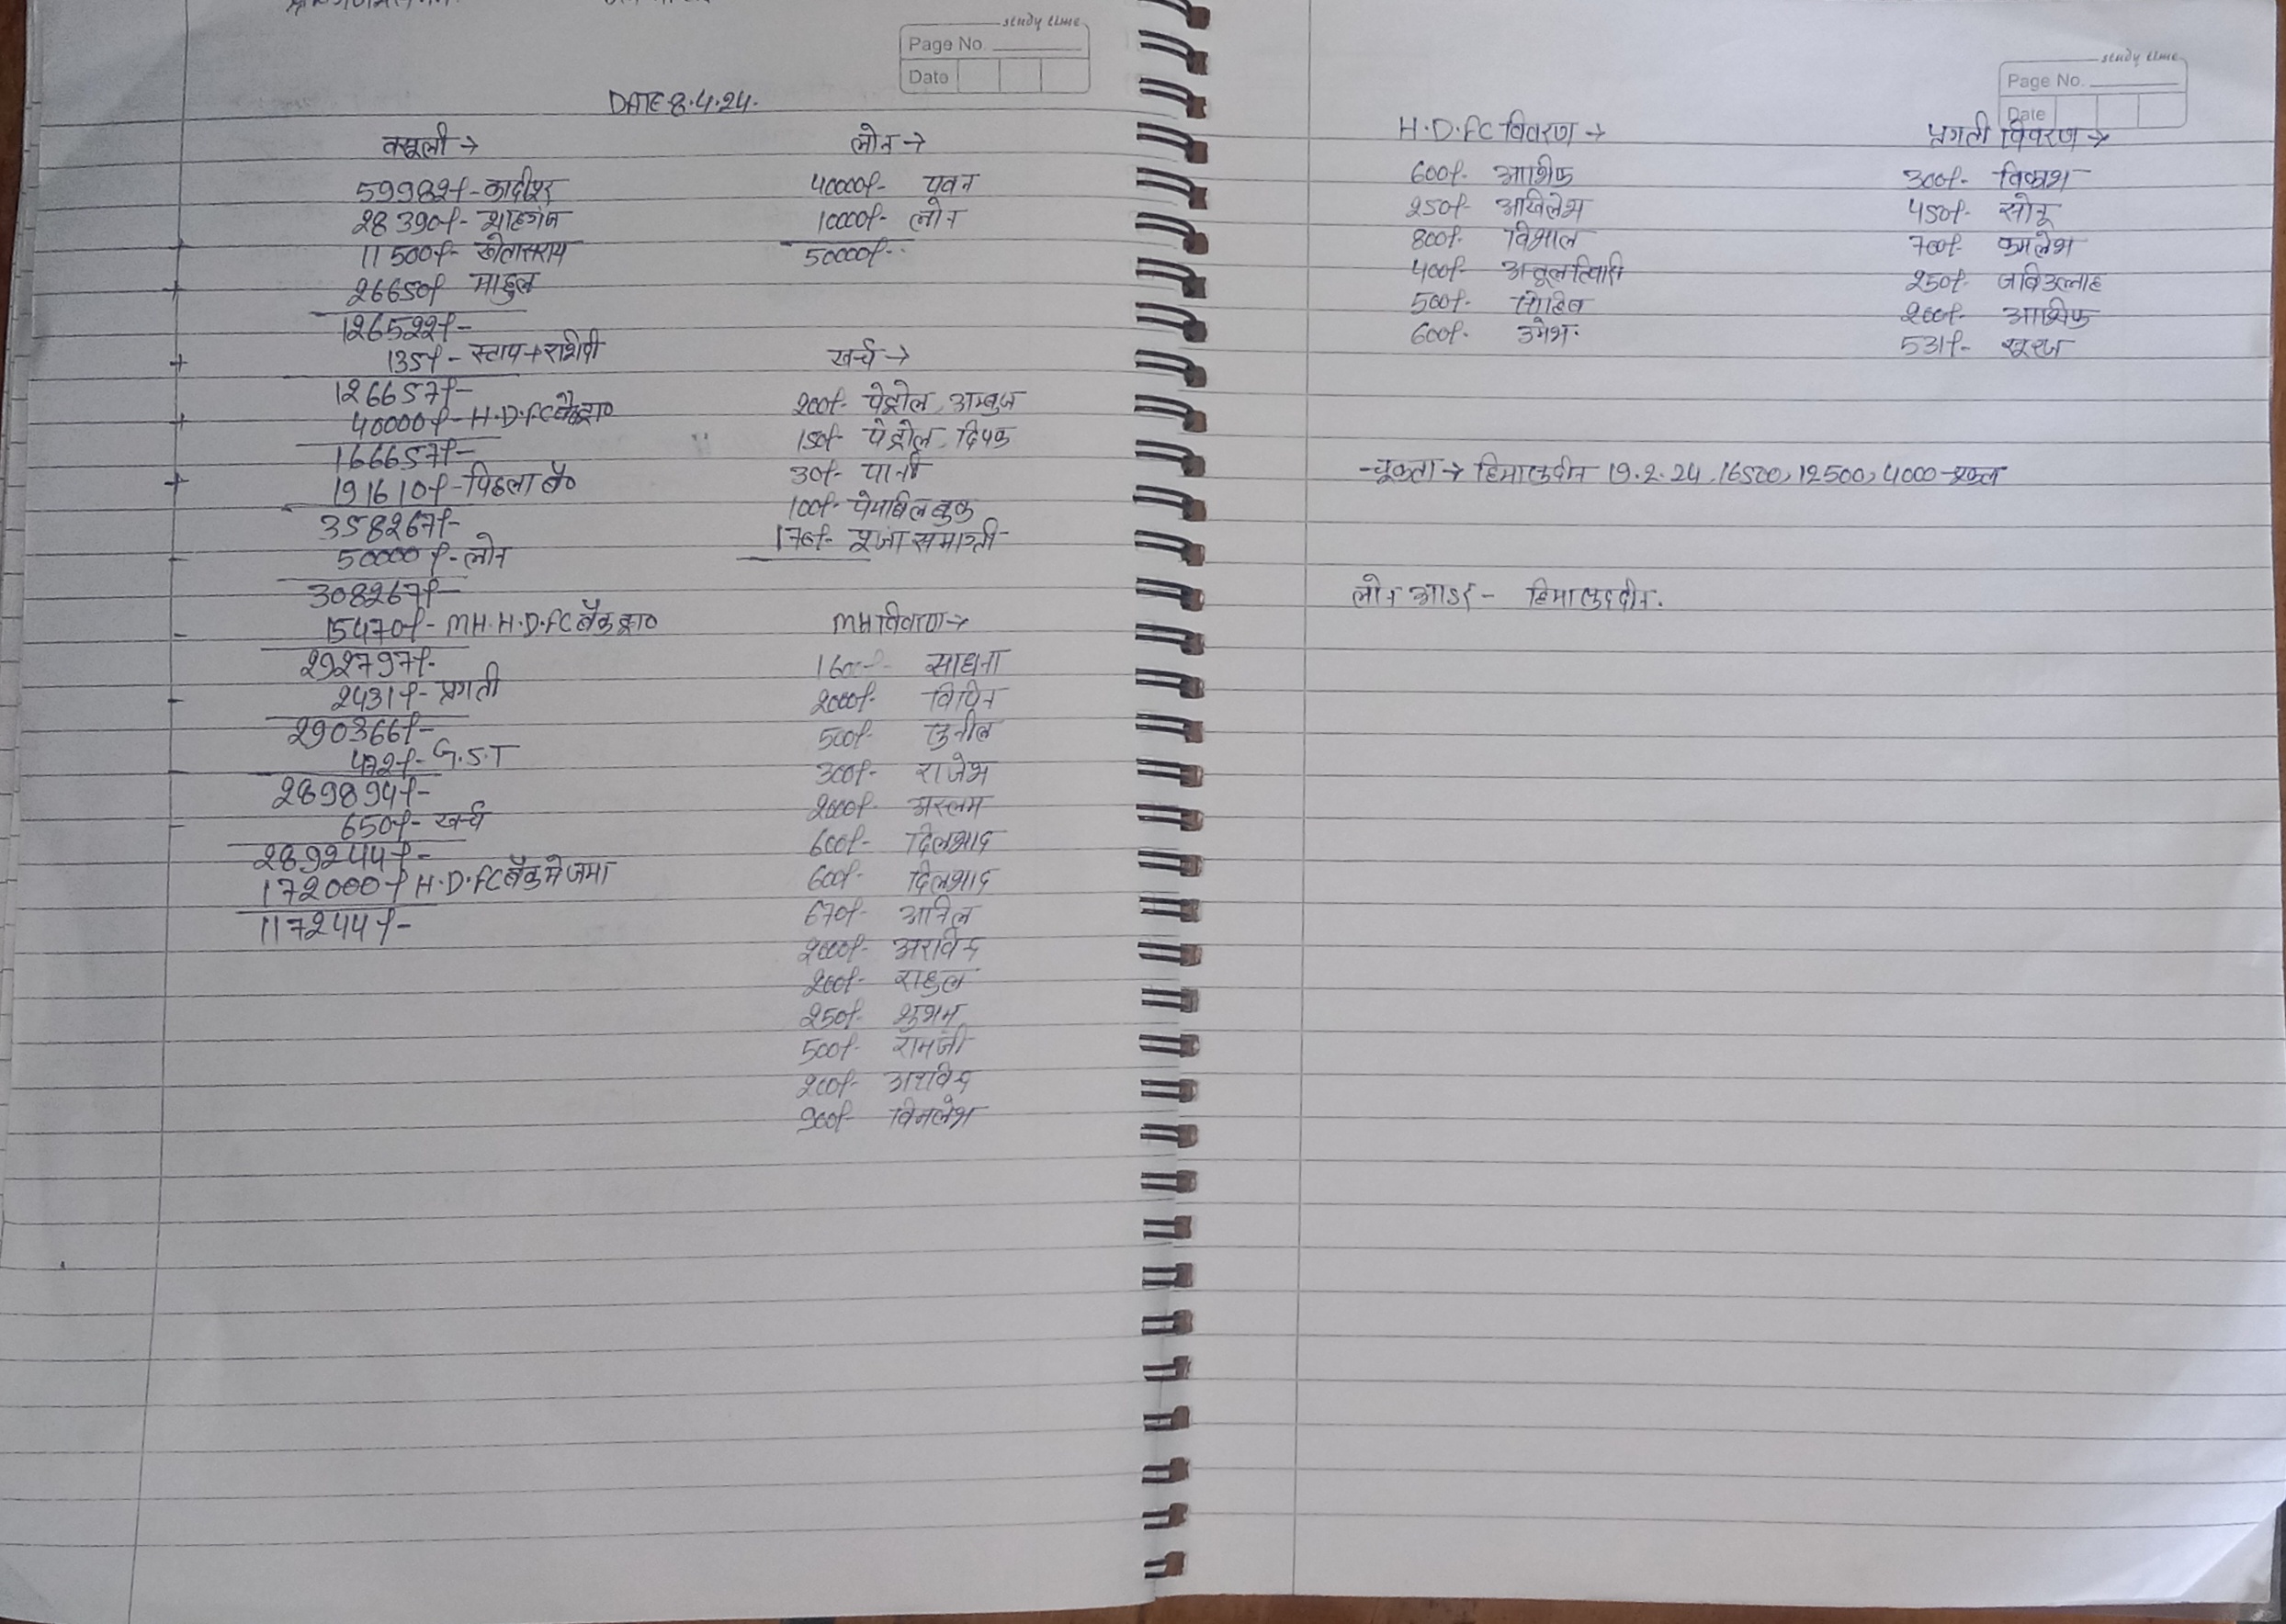 study time
Page No.
Date
DATE 8.4.24.
वसूली →
59982/- कादीपुर
28390/- शाहगंज
+ 11500/- खेतासराय
+ 26650/- माहुल
126522/-
+ 135/- स्टाप+राशेपी
126657/-
+ 40000/- H.D.FC बैंक द्वा०
166657/-
+ 191610/- पिछला बै०
358267/-
- 50000/- लोन
308267/-
- 15470/- MH.H.D.FC बैंक द्वा०
292797/-
- 2431/- प्रगती
290366/-
- 472/- G.S.T
289894/-
- 650/- खर्च
289244/-
172000/- H.D.FC बैंक मे जमा
117244/-
लोन →
40000/- पवन
10000/- लोन
50000/-
खर्च →
200/- पेट्रोल, अम्बुज
150/- पेट्रोल, दिपक
30/- पानी
100/- पेमाबिल बुक
170/- पूजा समाग्री
MH विवरण →
1600/- साधना
2000/- विपिन
500/- सुनील
300/- राजेश
2000/- अस्लम
600/- दिलशाद
600/- दिलशाद
670/- अनिल
2000/- अरविन्द
200/- राहुल
250/- शुभम
500/- रामजी
200/- अरविन्द
900/- विमलेश
study time
Page No.
Date
H.D.FC विवरण →
600/- आशिफ
250/- अखिलेश
800/- विशाल
400/- अतूल तिवारी
500/- मोहित
600/- उमेश.
प्रगती विवरण →
300/- विकाश
450/- सोनू
700/- कमलेश
250/- जबिउल्लाह
200/- आशिफ
531/- सूरज
चूकता → हिमालुदीन 19.2.24, 16500, 12500, 4000
लोन आडर - हिमालुददीन.